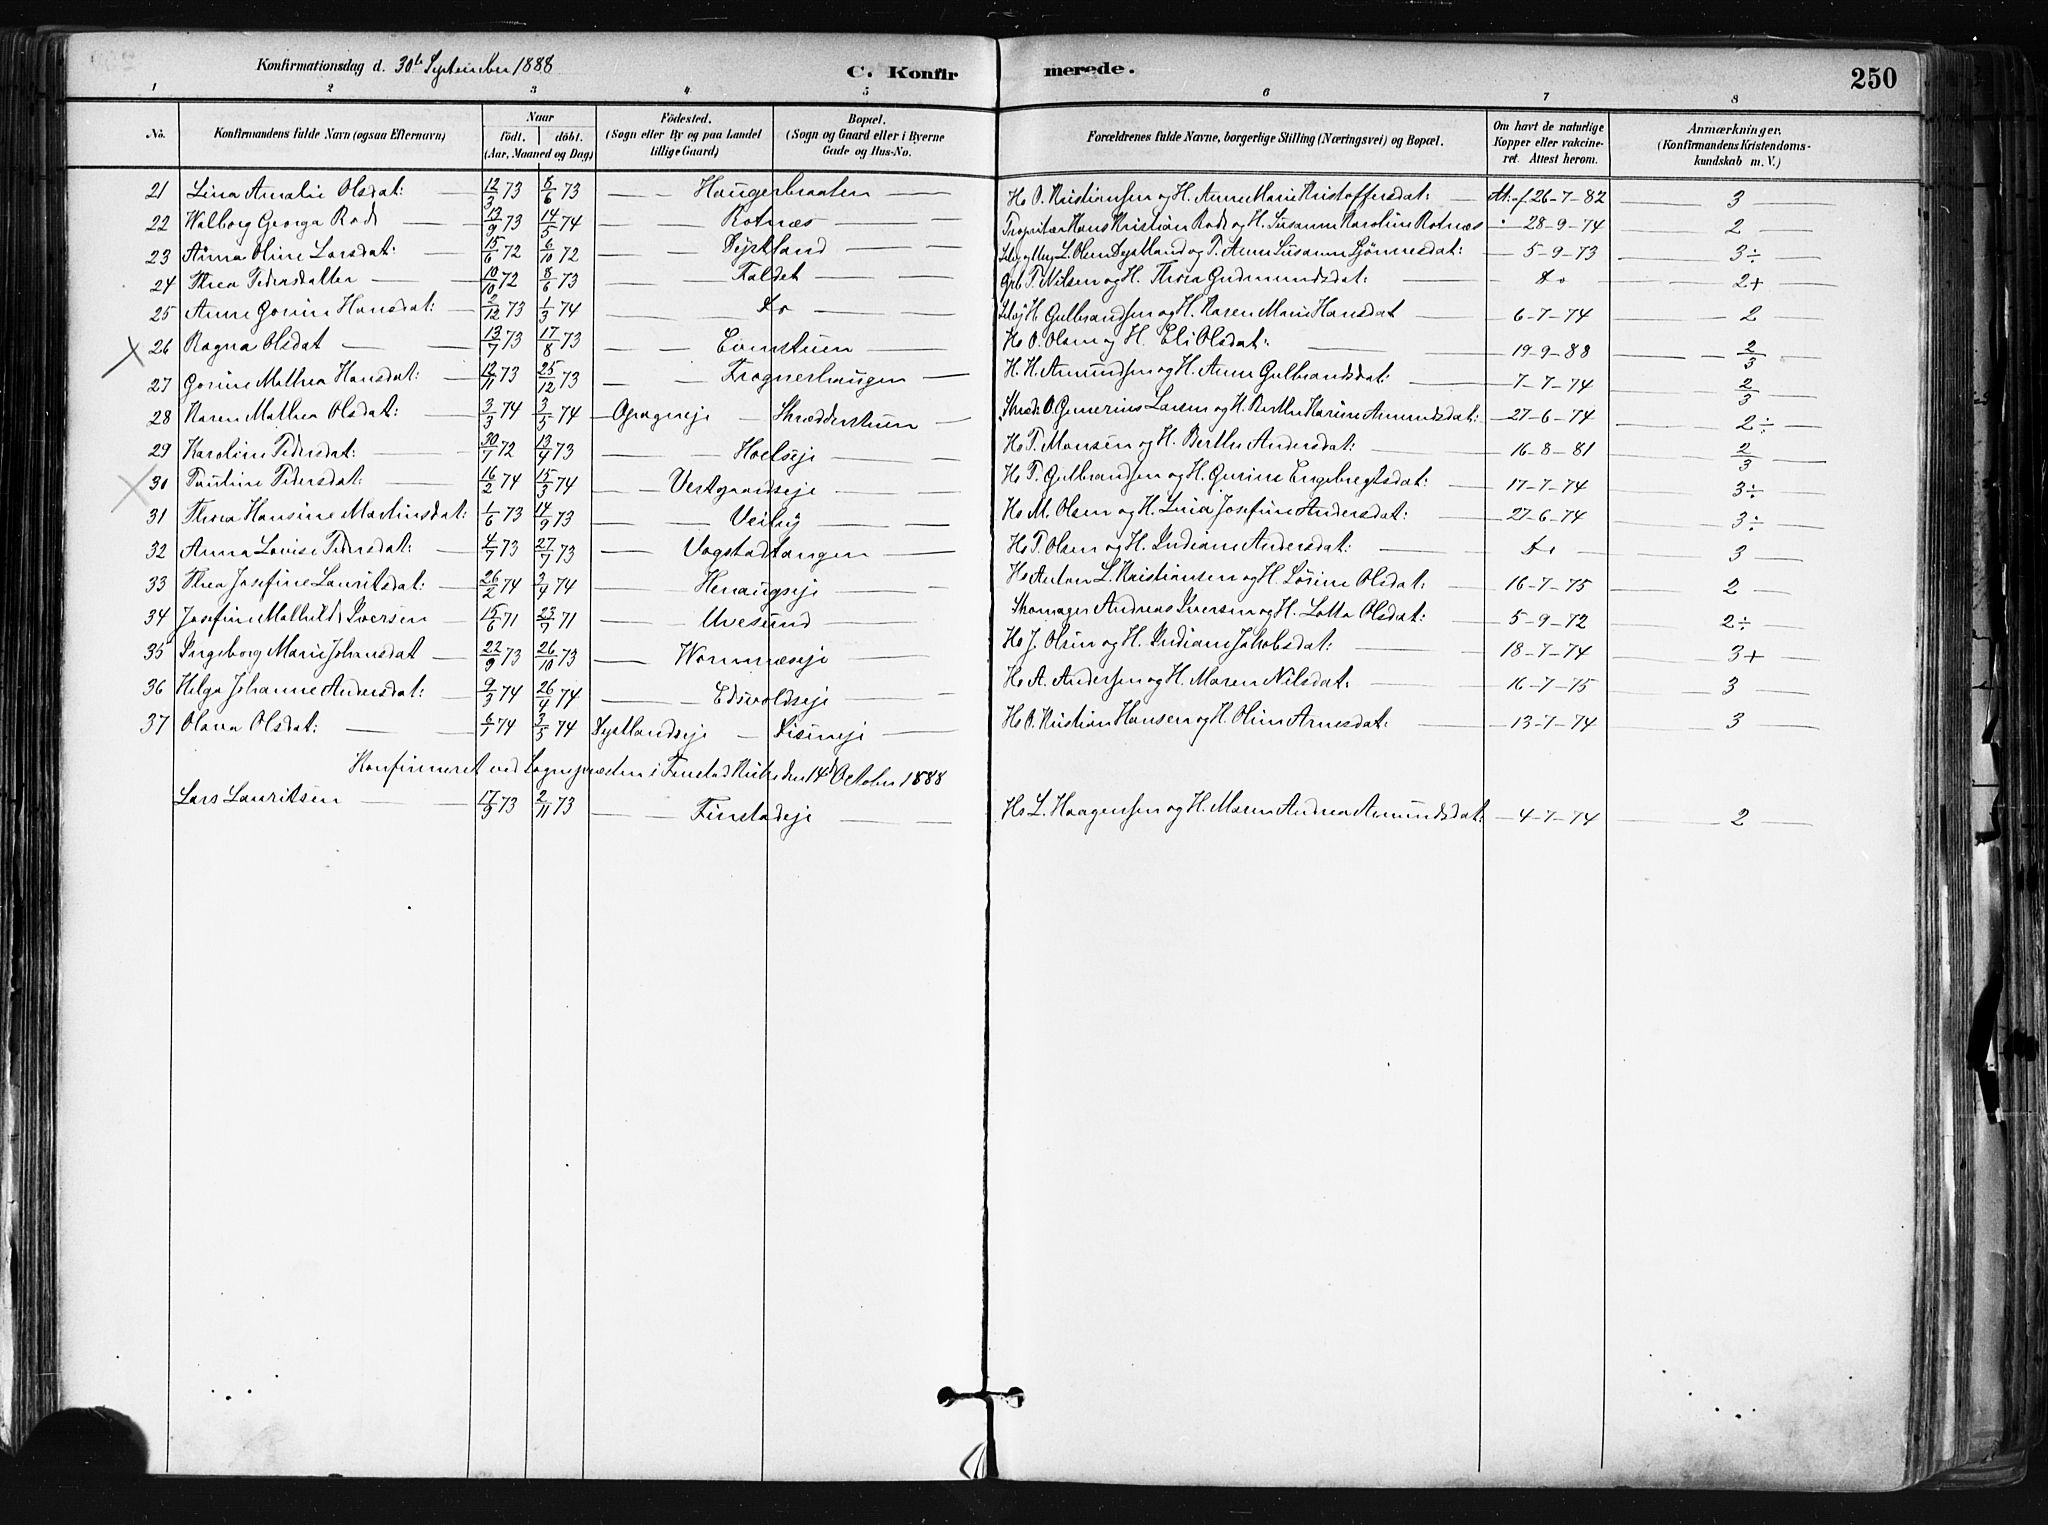 Konfirmationsdag d. 30te September 1888 C. Konfirmerede. 250
1 2 3 4 5 6 7 8
No. Konfirmandens fulde Navn (ogsaa Efternavn) Naar födt. döbt. (Aar, Maaned og Dag) Födested. (Sogn eller By og paa Landet tillige Gaard) Bopæl. (Sogn og Gaard eller i Byerne Gade og Hus-No. Forældrenes fulde Navne, borgerlige Stilling (Næringsvei) og Bopæl. Om havt de naturlige Kopper eller vakcineret. Attest herom. Anmærkninger. (Konfirmandens Kristendomskundskab m. V.)
21 Lina Amalie Olsdat: — 12/3 73 8/6 73 — Haugerbraaten — H O. Kristiansen og H. Anne Marie Kristoffersdat: — At: f 26-7-82 — 3 —
22 Walborg Georga Rode — 13/9 73 14/5 74 — Rotnæs — Propritær Hans Kristian Rode og H. Susanne Karoline Rotnæs 28-9-74 — 2 —
23 Anna Oline Larsdat: — 15/6 72 6/10 72 — Dystland — L. Olsen Dystland og P. Anne Susanne Sjönnesdat: — 5-9-73 — 3÷ —
24 Thea Pedersdatter — 10/10 72 8/6 73 — Faldet — Gb P. Nilsen og H. Thea Gudmundsdat: — do — 2+ —
25 Anne Gorine Hansdat: — 2/12 73 1/3 74 — do — H. Gulbrandsen og H. Karen Marie Hansdat — 6-7-74 — 2 —
26 Ragna Olsdat — 13/7 73 17/8 73 — Evenstuen — H O. Olsen og H. Eli Olsdat: — 19-9-88 — 2/3 —
27 Gorine Mathea Hansdat: — 12/11 73 25/12 73 — Frognerhaugen — H. H. Amundsen og H. Anne Gulbrandsdat: — 7-7-74 — 2/3 —
28 Karen Mathea Olsdat: — 3/3 74 3/5 74 — Opagneje — Skrædderstuen — Skræd: O. Gunerius Larsen og H. Berthe Karine Amundsdat: — 27-6-74 — 2÷ —
29 Karoline Pedersdat: — 30/7 72 13/4 73 — Holseje — H P. Monsen og H. Berthe Andersdat: — 16-8-81 — 2/3 —
30 Pauline Pedersdat: — 16/2 74 15/3 74 — Vestgaardseje — H P. Gulbrandsen og H. Gurine Engebregtsdat: — 17-7-74 — 3÷ —
31 Thea Hansine Martinsdat: 1/6 73 14/9 73 — Veiby — H M. Olsen og H. Lina Josefine Andersdat: — 27-6-74 — 3÷ —
32 Anna Lovise Pedersdat: — 4/7 73 27/7 73 — Vogstadtangen — H P. Olsen og H. Indiane Andersdat: — do — 3 —
33 Thea Josefine Lauritsdat: — 26/2 74 3/4 74 — Henaugseje — H Anton L. Kristiansen og H. Lovine Olsdat: — 16-7-75 — 2 —
34 Josefine Mathilde Iversen — 15/6 71 23/7 71 — Uvesund — Skomager Andreas Iversen og H. Lotta Olsdat: — 5-9-72 — 2÷ —
35 Ingeborg Marie Johansdat — 22/9 73 26/10 73 — Wormnæseje — H J. Olsen og H. Indiane Jakobsdat: — 18-7-74 — 3+ —
36 Helga Johanne Andersdat: — 9/3 74 26/4 74 — Edsvoldseje — H A. Andersen og H. Maren Nilsdat: — 16-7-75 — 3 —
37 Olava Olsdat: — 6/1 74 3/5 74 Dystlandseje — Disineje — H O. Kristian Hansen og H. Oline Arnesdat: — 13-7-74 — 3 —
Konfirmeret ved Sognepræsten i Finstad Kirke den 14d Octobr 1888
Lars Lauritsen — 17/9 73 2/11 73 — Finstadeje — H L. Haagensen og H. Maren Andrea Amundsdat: — 4-7-74 — 2 —